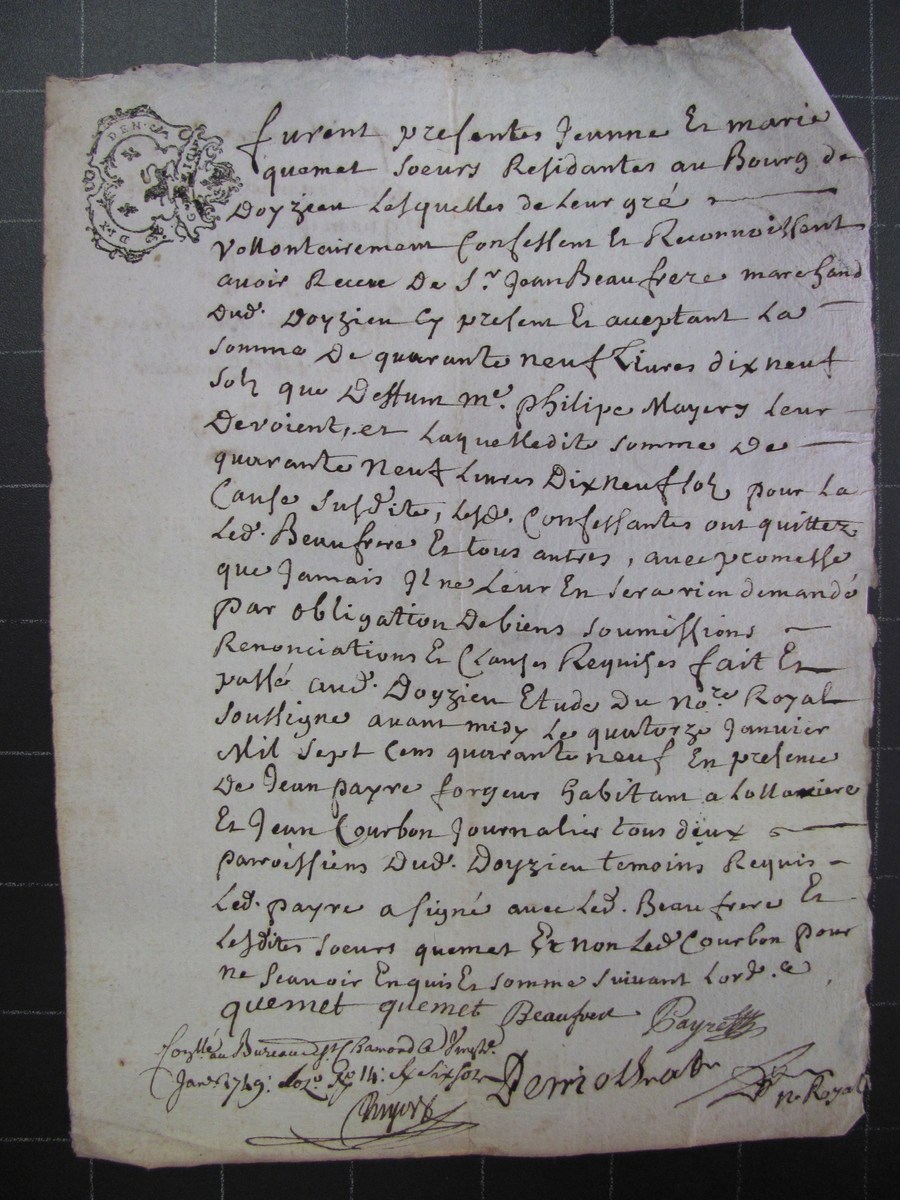 furent presentes Jeanne Et marie
quemet soeurs Residantes au Bourg de
Doyzieu Lesquelles de Leur gré
vollontairement Confessent Et Reconnoissent
avoir Receu De Sr. Jean Beaufrere marchand
Dud. Doyzieu Cy present Et aceptant La
somme De quarante neuf Livres dix neuf
solz que Deffunt me. philipe Mayery Leur
Devoient, et Laquelledite somme De
quarante Neuf Livres Dix neuf solz pour La
Cause susdite, Lesd. Confessantes ont quittez
Led. Beaufrere Et tous autres, avec promesse
que Jamais Jl ne Leur En sera rien demandé
par obligation De biens soumissions
Renonciations Et Clauses Requises fait Et
passé aud. Doyzieu Etude Du Nore. Royal
soussigne avant midy Le quatorze Janvier
Mil sept Cens quarante neuf En presence
De Jean payre forgeur habitant a
Et Jean Courbon Journalier tous deux
parroissiens Dud. Doyzieu temoins Requis
Led. payre a signé avec Led. Beaufrere Et
Lesdites soeurs quemet Et non Led. Courbon pour
ne scavoir Enquis Et somme suivant Lord.ce
quemet quemet Beaufrere Payre
au Bureau de St Chamond Le
Janr. 1749: fo. 14: six sols
n. Royal